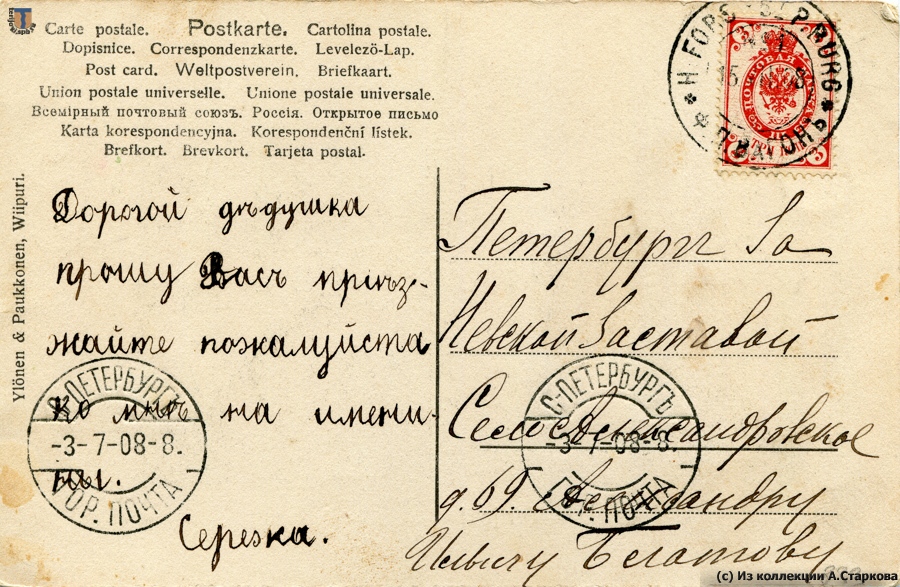 Carte postale. Postkarte. Cartolina postale.
Dopisnice. Correspondenzkarte. Levelező-Lap.
Post card. Weltpostverein. Briefkaart.
Union postale universelle. Unione postale universale.
Всемірный почтовый союзъ. Россія. Открытое письмо
Karta korespondencyjna. Korespondenční lístek.
Brefkort. Brevkort. Tarjeta postal.
Ylönen & Paukkonen, Wiipuri.
Дорогой дѣдушка
прошу Васъ приѣз-
жайте пожалуйста
ко мнѣ на имени-
ны.
Сережка.
Петербургъ За
Невской Заставой
Село Александровское
д. 69. Александру
Ильичу
С-ПЕТЕРБУРГЪ
-3-7-08-8.
ГОР. ПОЧТА
С-ПЕТЕРБУРГЪ
-3-7-08-8.
ГОР. ПОЧТА
ПОЧТОВАЯ МАРКА
ТРИ КОП.
3 3
(c) Из коллекции А.Старкова